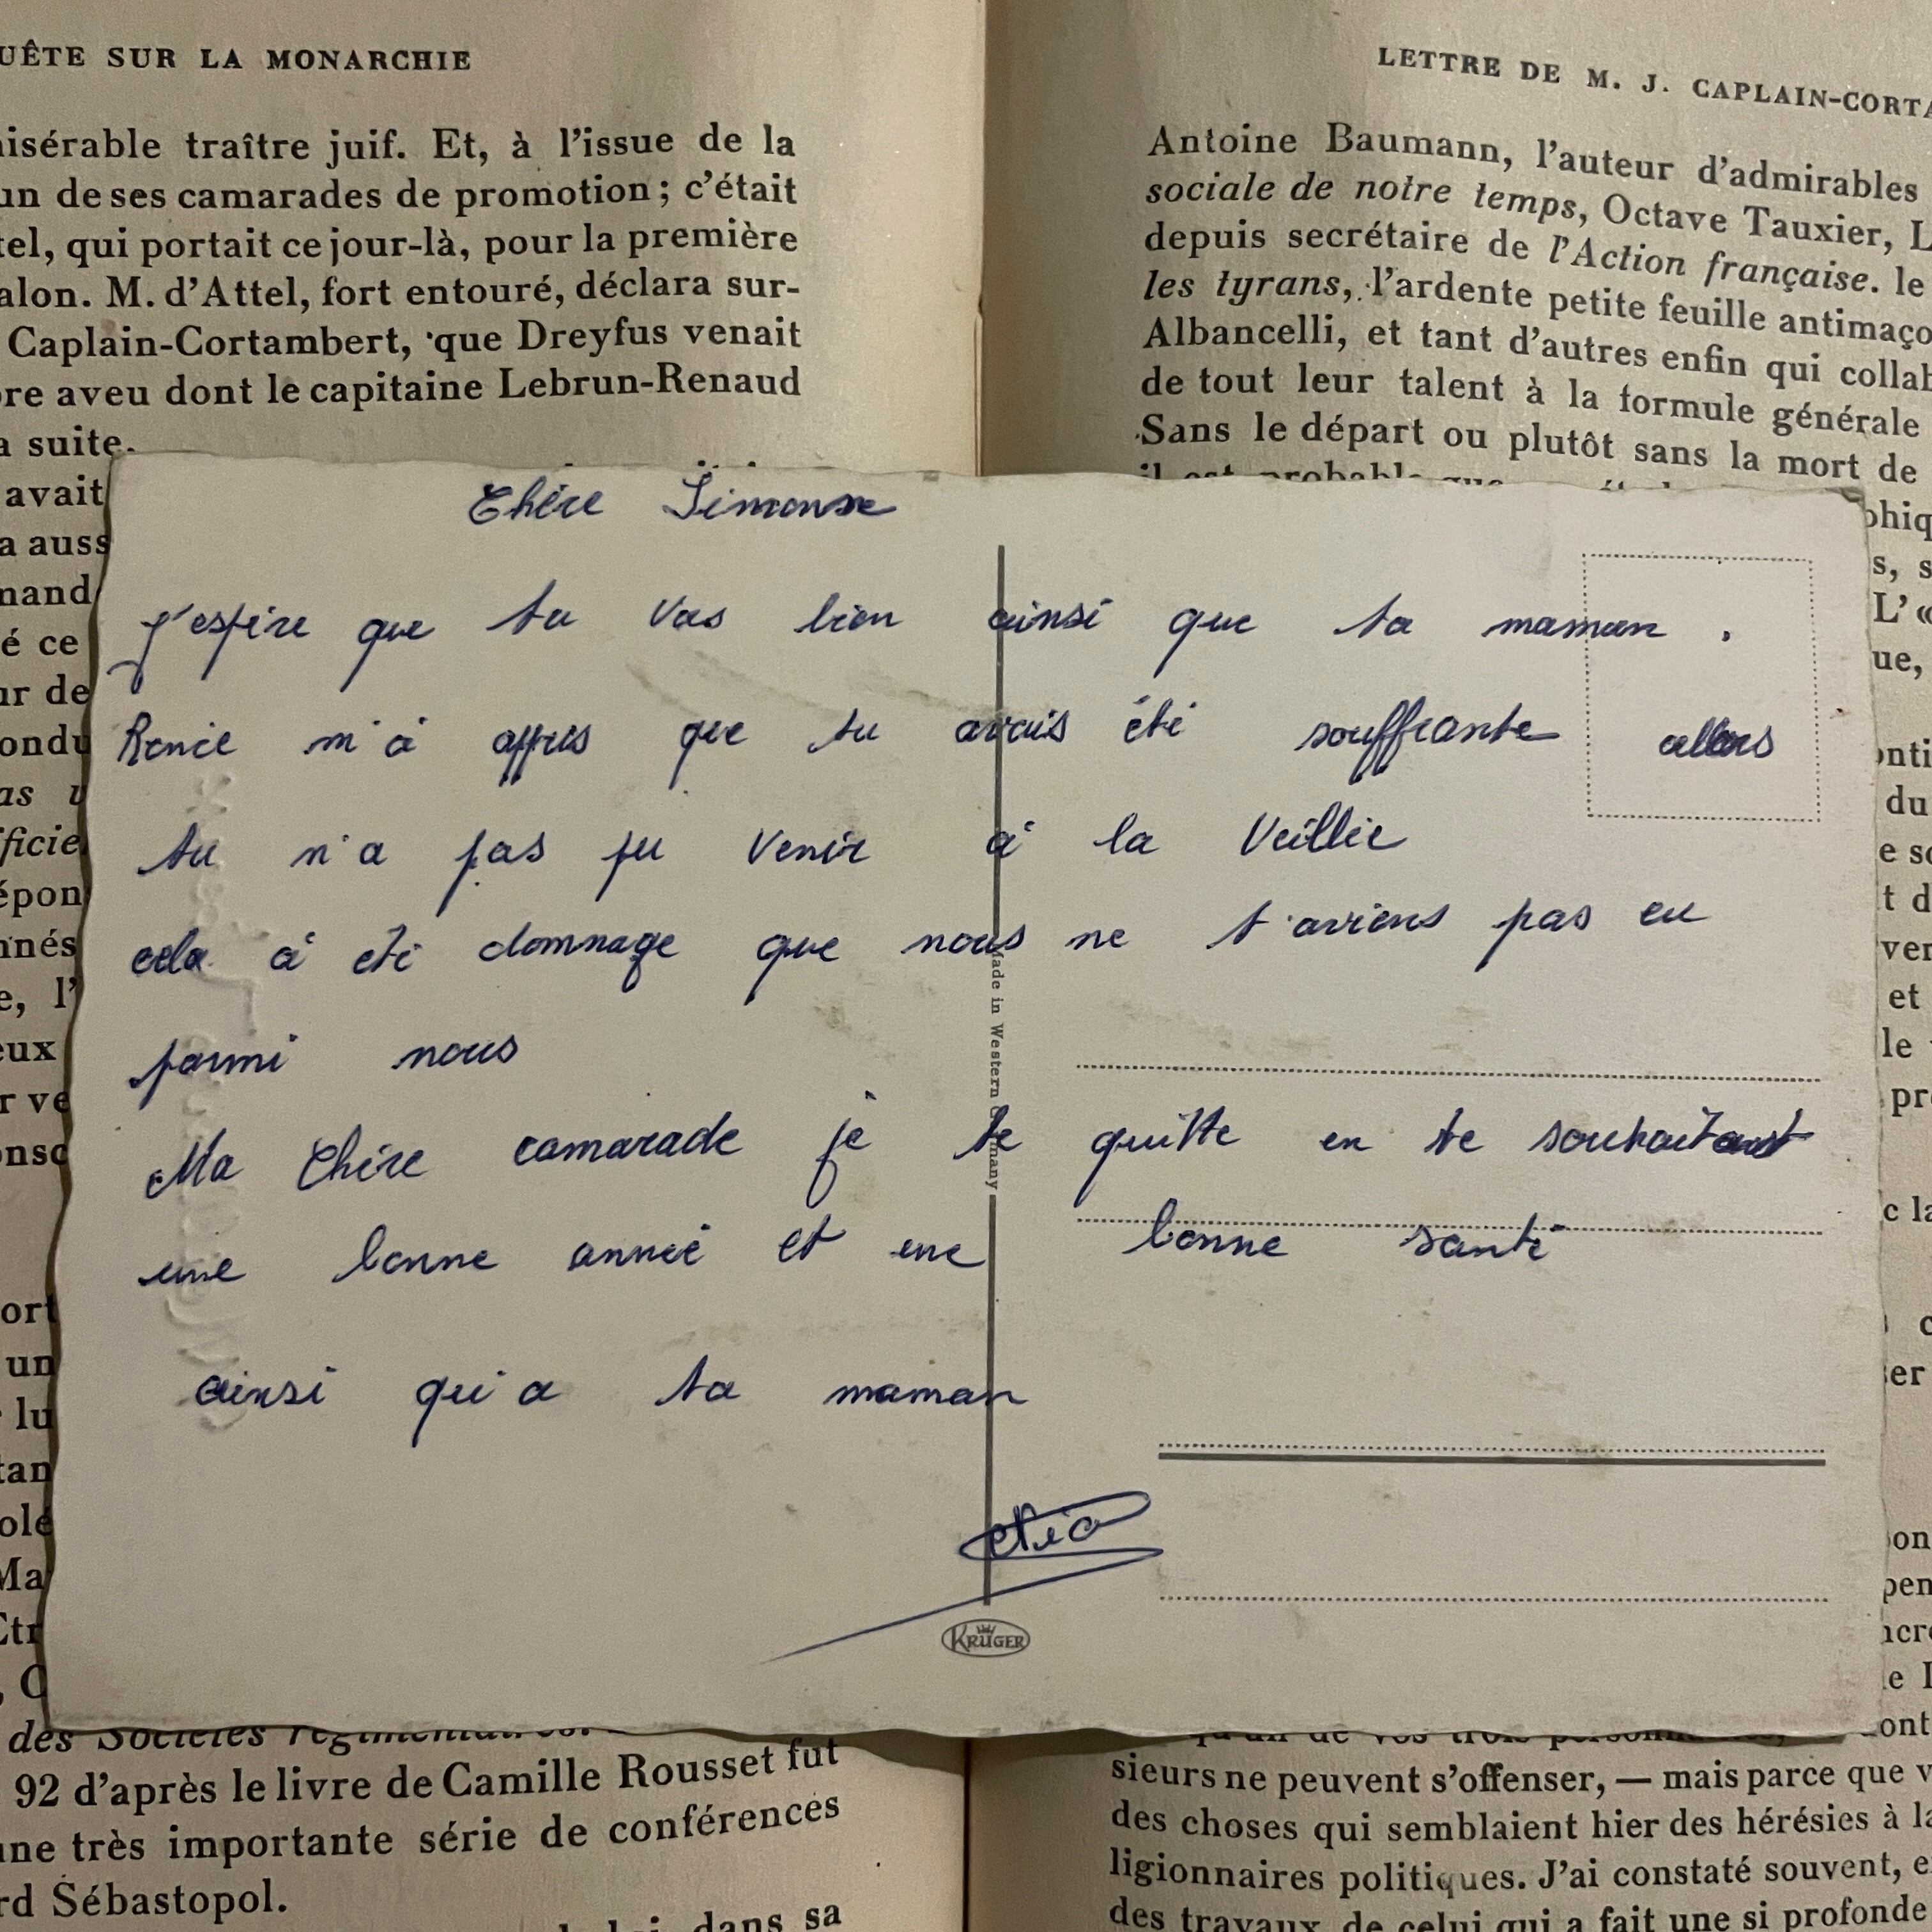 UÊTE SUR LA MONARCHIE
isérable traître juif. Et, à l'issue de la
un de ses camarades de promotion ; c'était
tel, qui portait ce jour-là, pour la première
alon. M. d'Attel, fort entouré, déclara sur-
Caplain-Cortambert, que Dreyfus venait
re aveu dont le capitaine Lebrun-Renaud
a suite.
avait
a auss
mand
é ce
ur de
ondu
as
ficie
épon
nnés
e, l'
eux
r ve
onsc
ort
un
lu
tan
olé
Ma
Etr
, C
des Sociétés régimentaires.
92 d'après le livre de Camille Rousset fut
une très importante série de conférences
rd Sébastopol.
dans sa
LETTRE DE M. J. CAPLAIN-CORTA
Antoine Baumann, l'auteur d'admirables
sociale de notre temps, Octave Tauxier, L
depuis secrétaire de l'Action française. le
les tyrans, l'ardente petite feuille antimaço
Albancelli, et tant d'autres enfin qui collab
de tout leur talent à la formule générale
Sans le départ ou plutôt sans la mort de
il est probable que
phiq
s, s
L' «
ue,
onti
du
e so
t d
ver
et
le
pr
c la
c
er
on
pen
ncre
e I
ont
qu'un de vos trois
sieurs ne peuvent s'offenser, — mais parce que v
des choses qui semblaient hier des hérésies à la
ligionnaires politiques. J'ai constaté souvent, e
des travaux de celui qui a fait une si profonde
Chère Simonne
J'espère que tu vas bien ainsi que ta maman.
Renée m'à appris que tu avais été souffrante allors
tu n'a pas pu venir à la Veillée
cela à été domnage que nous ne t'aviens pas eu
parmi nous
Ma Chère camarade je te quitte en te souhaitant
une bonne année et une bonne santé
ainsi qu'a ta maman
Made in Western Germany
KRÜGER